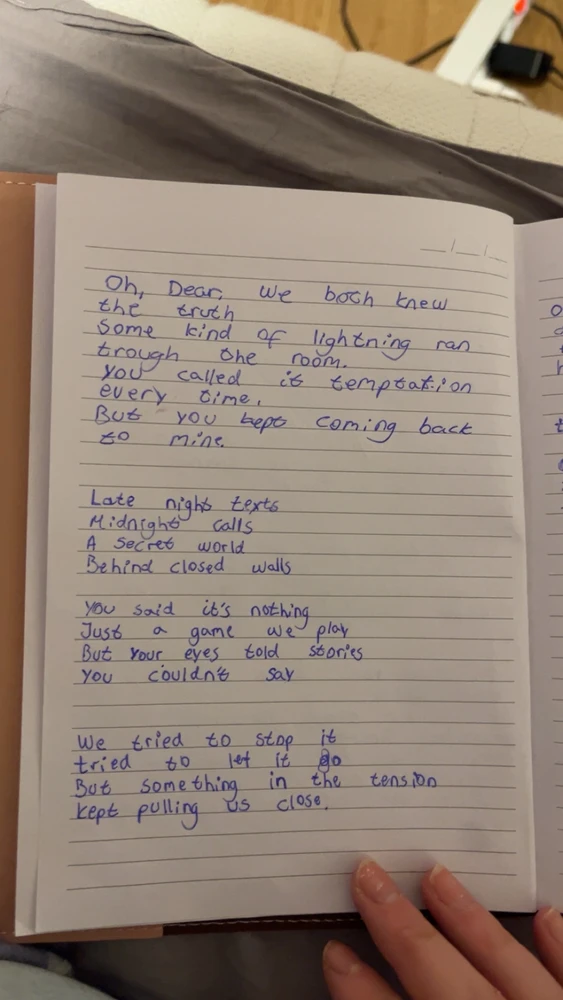 Oh, Dear, we both knew
the truth
Some kind of lightning ran
trough the room.
you called it temptation
every time.
But you kept coming back
to mine.
Late night texts
Midnight calls
A secret world
Behind closed walls
You said it's nothing
Just a game we play
But your eyes told stories
you couldn't say
We tried to stop it
tried to let it go
But something in the tension
kept pulling us close.